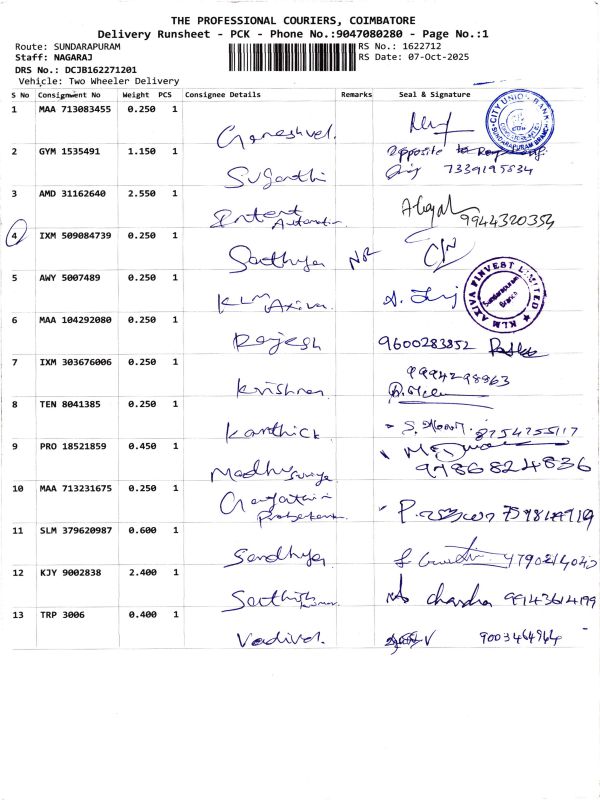 THE PROFESSIONAL COURIERS, COIMBATORE
Delivery Runsheet - PCK - Phone No.:9047080280 - Page No.:1
Route: SUNDARAPURAM RS No.: 1622712
Staff: NAGARAJ RS Date: 07-Oct-2025
DRS No.: DCJB162271201
Vehicle: Two Wheeler Delivery
S No Consignment No Weight PCS Consignee Details Remarks Seal & Signature
1 MAA 713083455 0.250 1 Ganeshvel. CITY UNION BANK SUNDARAPURAM BRANCH
2 GYM 1535491 1.150 1 Suganthi Opposite
7339195834
3 AMD 31162640 2.550 1 Intent Automation 9944320354
4 IXM 509084739 0.250 1 Sathya NR
5 AWY 5007489 0.250 1 KLM Axiva KLM AXIVA FINVEST LIMITED Sundarapuram Branch
6 MAA 104292080 0.250 1 Rajesh 9600283852
7 IXM 303676006 0.250 1 Krishnan 9994298963
8 TEN 8041385 0.250 1 Karthick 8754755117
9 PRO 18521859 0.450 1 Madhu Surya 9786824836
10 MAA 713231675 0.250 1 Gayathri Prabakaran
11 SLM 379620987 0.600 1 Sandhya 4790214040
12 KJY 9002838 2.400 1 Sathish kumar chandra 9943614199
13 TRP 3006 0.400 1 Vadivel V 9003464964